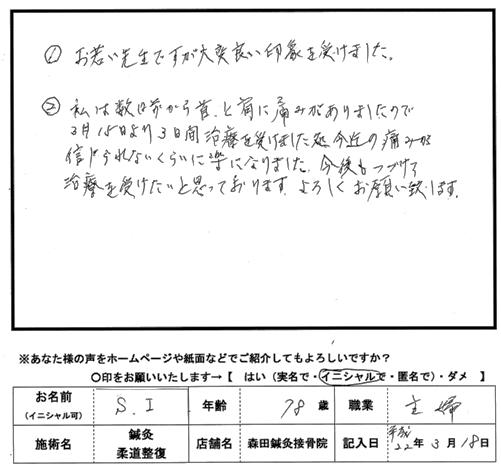 ① お若い先生ですが大変良い印象を受けました。
② 私は数日前から首と肩に痛みがありましたので
3月15日より3日間治療を受けました処今迄の痛みが
信じられないくらいに楽になりました。今後もつづけて
治療を受けたいと思っております。よろしくお願い致します。
※あなた様の声をホームページや紙面などでご紹介してもよろしいですか?
○印をお願いいたします→【 はい(実名で・イニシャルで・匿名で)・ダメ 】
お名前 (イニシャル可) S.I 年齢 78 歳 職業 主婦
施術名 鍼灸 柔道整復 店舗名 森田鍼灸接骨院 記入日 平成22年3月18日